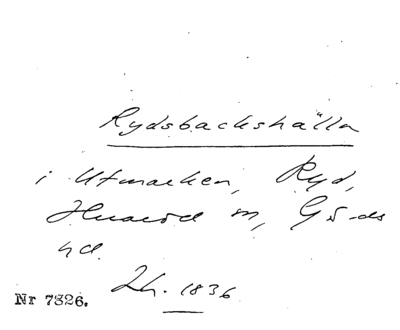 Rydsbackshälla
i Utmarken, Ryd,
sn, G-ds
hd.
Lh. 1836
Nr 7826.